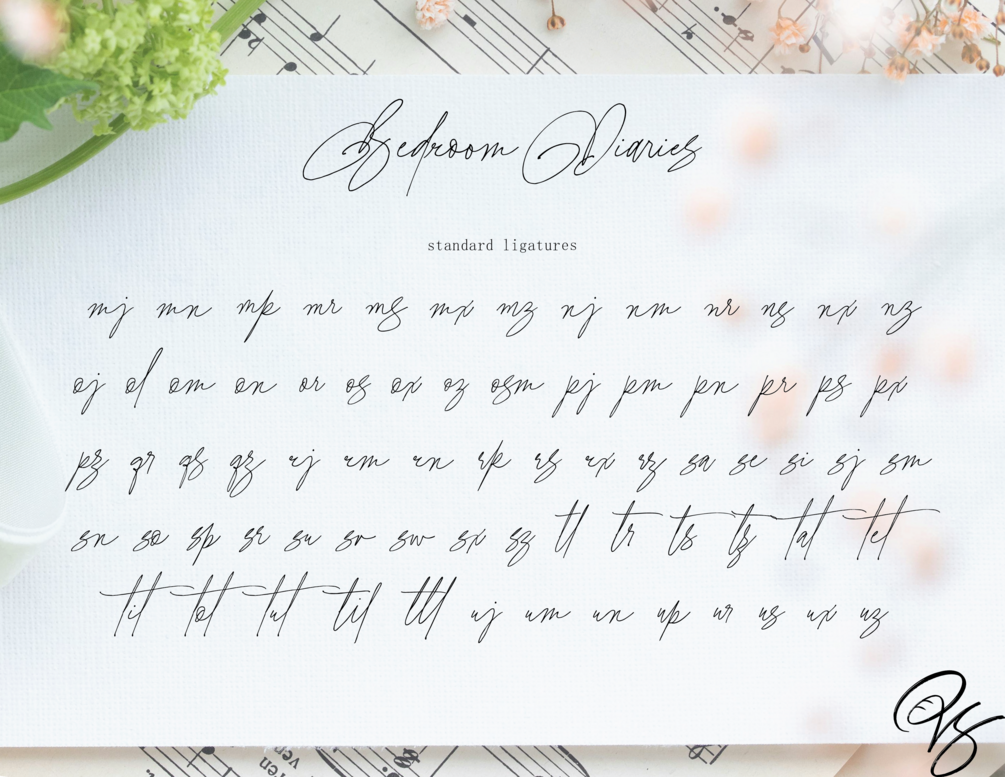 Bedroom Diaries
standard ligatures
mj mn mp mr ms mx mz nj nm nr ns nx nz
oj ol om on or os ox oz osm pj pm pn pr ps px
pz qr qs qz rj rm rn rp rs rx rz sa se si sj sm
sn so sp sr su sv sw sx sz tl tr ts tz tat tet
tit tot tut til ttl uj um un up ur us ux uz